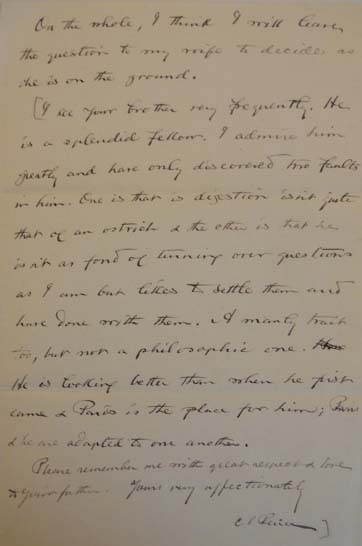 On the whole, I think I will leave
the question to my wife to decide, as
she is on the ground.
[I see your brother very frequently. He
is a splendid fellow. I admire him
greatly and have only discovered two faults
in him. One is that is digestion isn't quite
that of an ostrich & the other is that he
isn't as fond of turning over questions
as I am but likes to settle them and
have done with them. A manly trait
too, but not a philosophic one.
He is looking better than when he first
came & Paris is the place for him; Paris
& he are adapted to one another.
Please remember me with great respect & love
to your father. Yours very affectionately
C S Peirce]